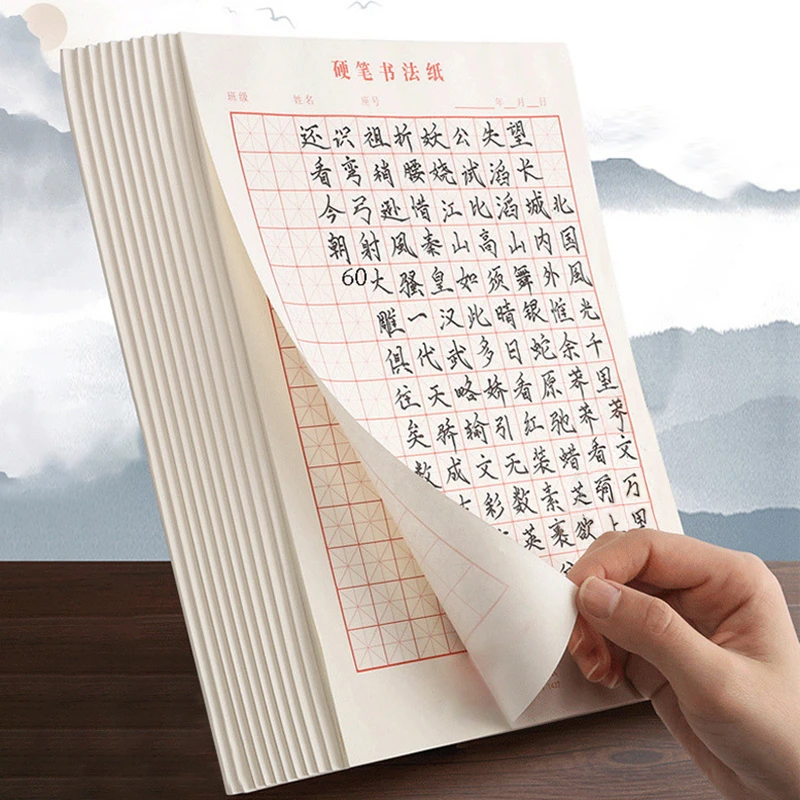 硬笔书法纸
班级 姓名 座号 年 月 日
北国風光千里莽文万里
望长城内外惟余莽莽看
失滔滔山舞银蛇原驰蜡
公试比高须晴日看红装素裹
妖娆江山如此多娇引无数英
折腰惜秦皇汉武略输文彩
祖稍逊風骚一代天骄成
识弯弓射大雕俱往矣数
还看今朝60